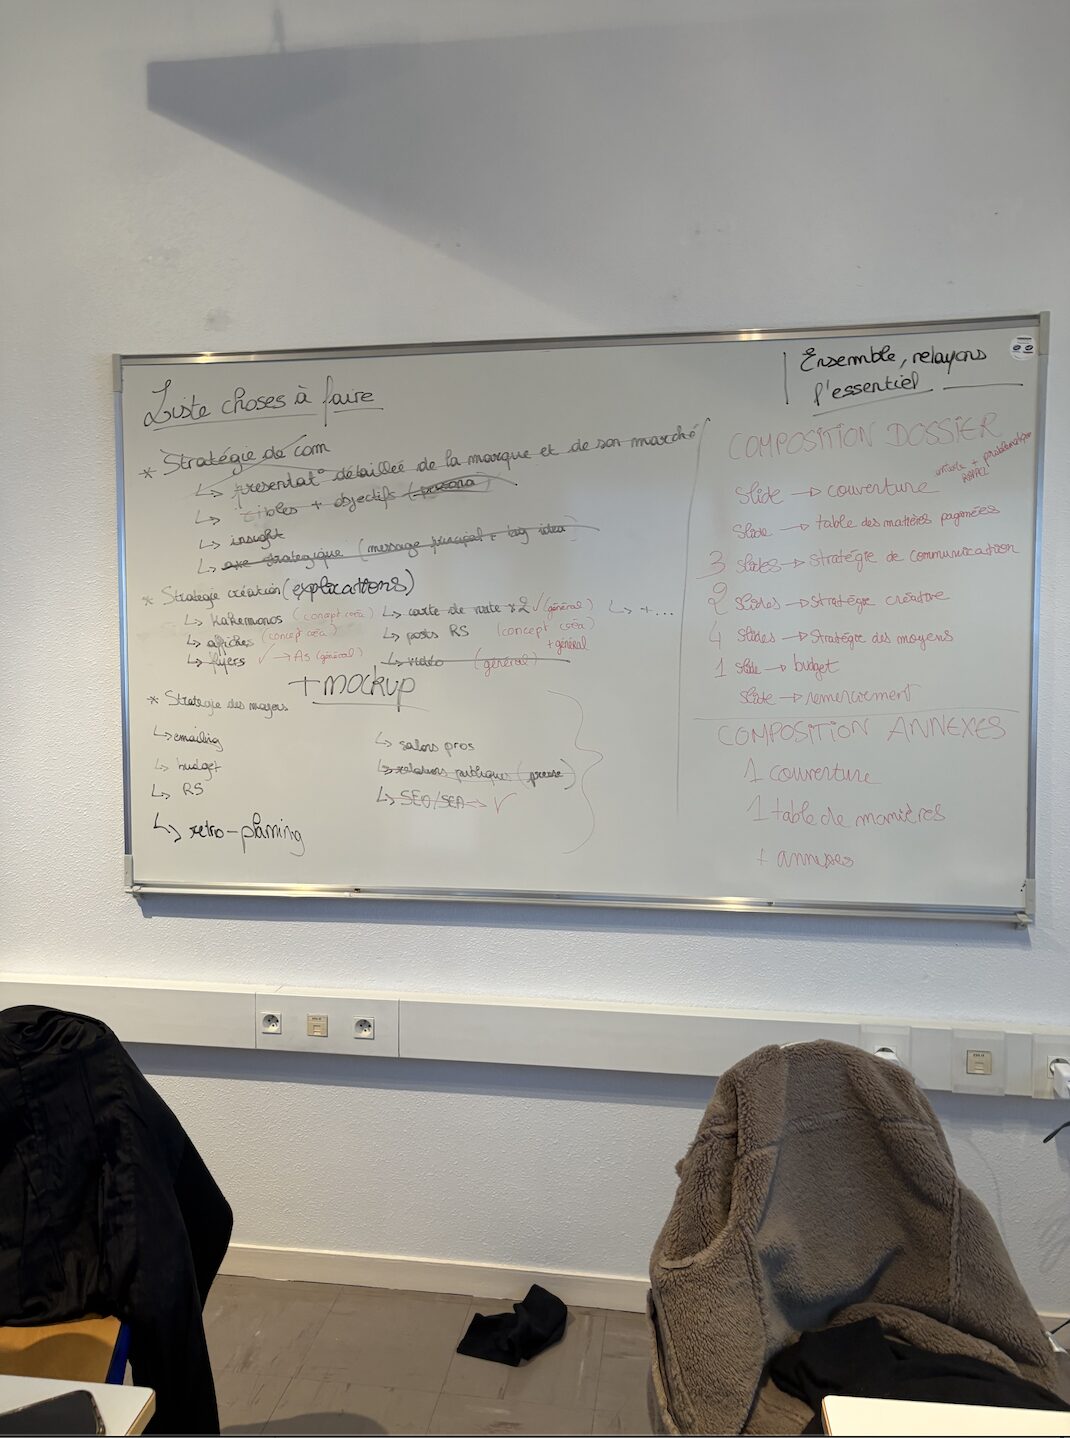 Liste choses à faire
* Stratégie de com
↳ présentat° détaillée de la marque et de son marché
↳ cibles + objectifs (persona)
↳ insight
↳ axe stratégique (message principal + big idea)
* Stratégie création (explications)
↳ Kakemonos (concept créa)
↳ affiches (concept créa)
↳ flyers ✓ → A5 (général)
↳ carte de visite x2 ✓ (général)
↳ posts RS (concept créa) + général
↳ vidéo (général)
↳ + ...
+ mockup
* Stratégie des moyens
↳ emailing
↳ budget
↳ RS
↳ retro-planing
↳ salons pros
↳ relations publiques (presse)
↳ SEO/SEA → ✓
Ensemble, relayons
l'essentiel
COMPOSITION DOSSIER
Slide → couverture
Slide → table des matières paginées
3 slides → stratégie de communication
2 slides → stratégie créative
4 slides → stratégie des moyens
1 slide → budget
slide → remerciement
COMPOSITION ANNEXES
1 couverture
1 table de manières
+ annexes